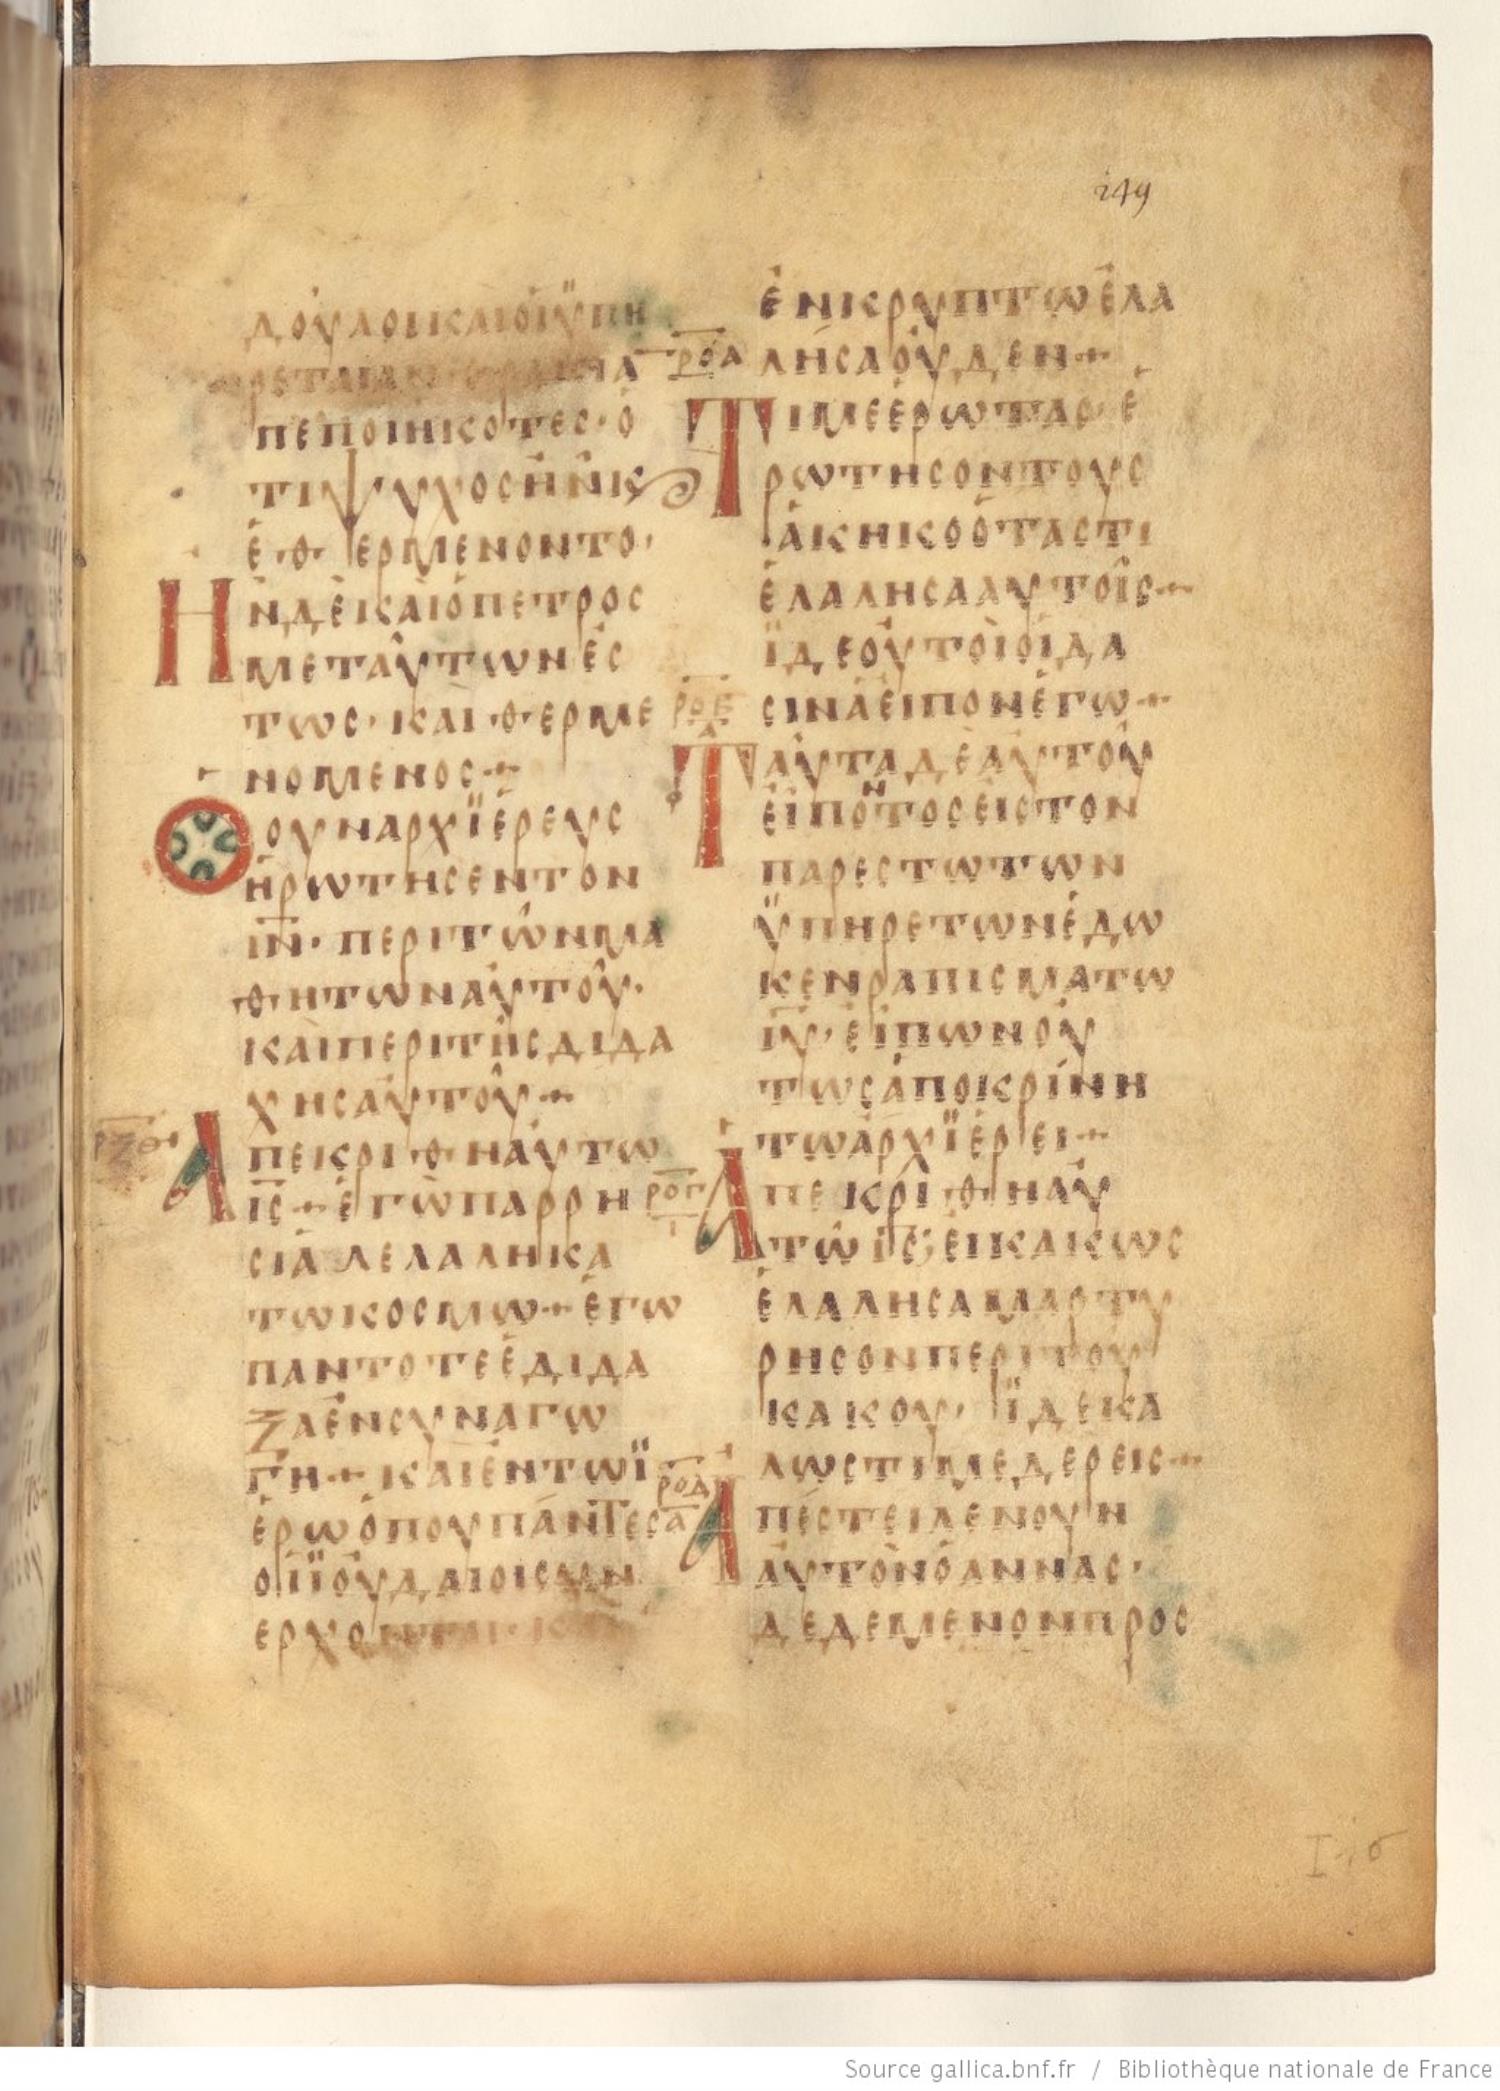 249
ΔΟΥΛΟΙΚΑΙΟΙΫΠΗ
ΡΕΤΑΙ
ΠΕΠΟΙΗΚΟΤΕΣ·Ο
ΤΙΨΥΧΟΣΗΝΚ
Ε·Θ·ΕΡΜΕΝΟΝΤΟ·
ΗΝΔΕΚΑΙΟΠΕΤΡΟΣ
ΜΕΤΑΥΤΩΝΕΣ
ΤΩΣ·ΚΑΙ·Θ·ΕΡΜΕ
ΝΟΜΕΝΟΣ
ΟΟΥΝΑΡΧΪΕΡΕΥΣ
ΗΡΩΤΗΣΕΝΤΟΝ
ΙΝ·ΠΕΡΙΤΩΝΜΑ
ΘΗΤΩΝΑΥΤΟΥ·
ΚΑΙΠΕΡΙΤΗΣΔΙΔΑ
ΧΗΣΑΥΤΟΥ
ΡΞΘ
ΑΠΕΚΡΙ·Θ·ΗΑΥΤΩ
ΙΣ ΕΓΩΠΑΡΡΗ
ΣΙΑΛΕΛΑΛΗΚΑ
ΤΩΚΟΣΜΩ ΕΓΩ
ΠΑΝΤΟΤΕΕΔΙΔΑ
ΞΑΕΝΣΥΝΑΓΩ
ΓΗ ΚΑΙΕΝΤΩΪ
ΕΡΩΟΠΟΥΠΑΝΤΕΣ
ΟΙΪΟΥΔΑΙΟΙΣΥΝ
ΕΡΧΟΝΤΑΙ·Κ
ΕΝΚΡΥΠΤΩΕΛΑ
ΡΟΑ
ΛΗΣΑΟΥΔΕΝ
ΤΙΜΕΕΡΩΤΑΣ·Ε
ΡΩΤΗΣΟΝΤΟΥΣ
ΑΚΗΚΟΟΤΑΣΤΙ
ΕΛΑΛΗΣΑΑΥΤΟΙΣ
ΪΔΕΟΥΤΟΙΟΙΔΑ
ΡΟΒ
ΣΙΝΑΕΙΠΟΝΕΓΩ
ΤΑΥΤΑΔΕΑΥΤΟΥ
ΕΙΠΟΝΤΟΣΕΙΣΤΟΝ
ΠΑΡΕΣΤΩΤΩΝ
ΫΠΗΡΕΤΩΝΕΔΩ
ΚΕΝΡΑΠΙΣΜΑΤΩ
ΙΥ·ΕΙΠΩΝΟΥ
ΤΩΣΑΠΟΚΡΙΝΗ
ΤΩΑΡΧΪΕΡΕΙ
ΡΟΓ
Ι
ΑΠΕΚΡΙ·Θ·ΗΑΥ
ΤΩΙΣ;ΕΙΚΑΚΩΣ
ΕΛΑΛΗΣΑΜΑΡΤΥ
ΡΗΣΟΝΠΕΡΙΤΟΥ
ΚΑΚΟΥ·ΪΔΕΚΑ
ΛΩΣΤΙΜΕΔΕΡΕΙΣ
ΡΟΔ
Α
ΑΠΕΣΤΕΙΛΕΝΟΥΝ
ΑΥΤΟΝΟΑΝΝΑΣ·
ΔΕΔΕΜΕΝΟΝΠΡΟΣ
Source gallica.bnf.fr / Bibliothèque nationale de France